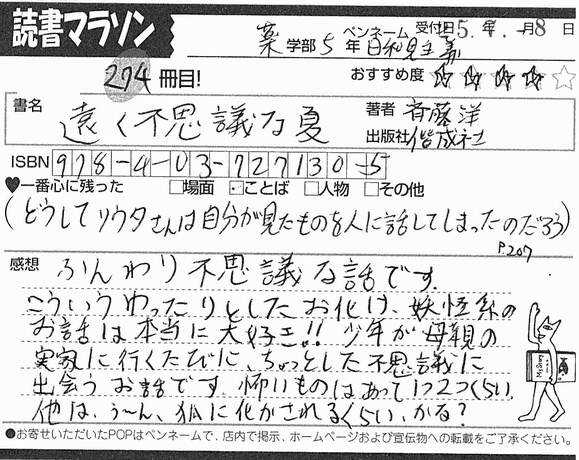 読書マラソン
薬 学部 5 年 ペンネーム 日和見主義 受付日 5. 7. 月 8 日
274 冊目! おすすめ度 ☆☆☆☆☆
書名 遠く不思議な夏
著者 斉藤洋
出版社 偕成社
ISBN 978-4-03-727130-5
♥一番心に残った □場面 □ことば □人物 □その他
(どうしてリウタさんは自分が見たものを人に話してしまったのだろう)
P.207
感想 ふんわり不思議な話です.
こういうゆったりとしたお化け、妖怪系の
お話は本当に大好き!! 少年が母親の
実家に行くたびに、ちょっとした不思議に
出会うお話です 怖いものはあって1つ2つくらい.
他は、う〜ん、狐に化かされるくらい、かな?
●お寄せいただいたPOPはペンネームで、店内で掲示、ホームページおよび宣伝物への転載をご了承ください。